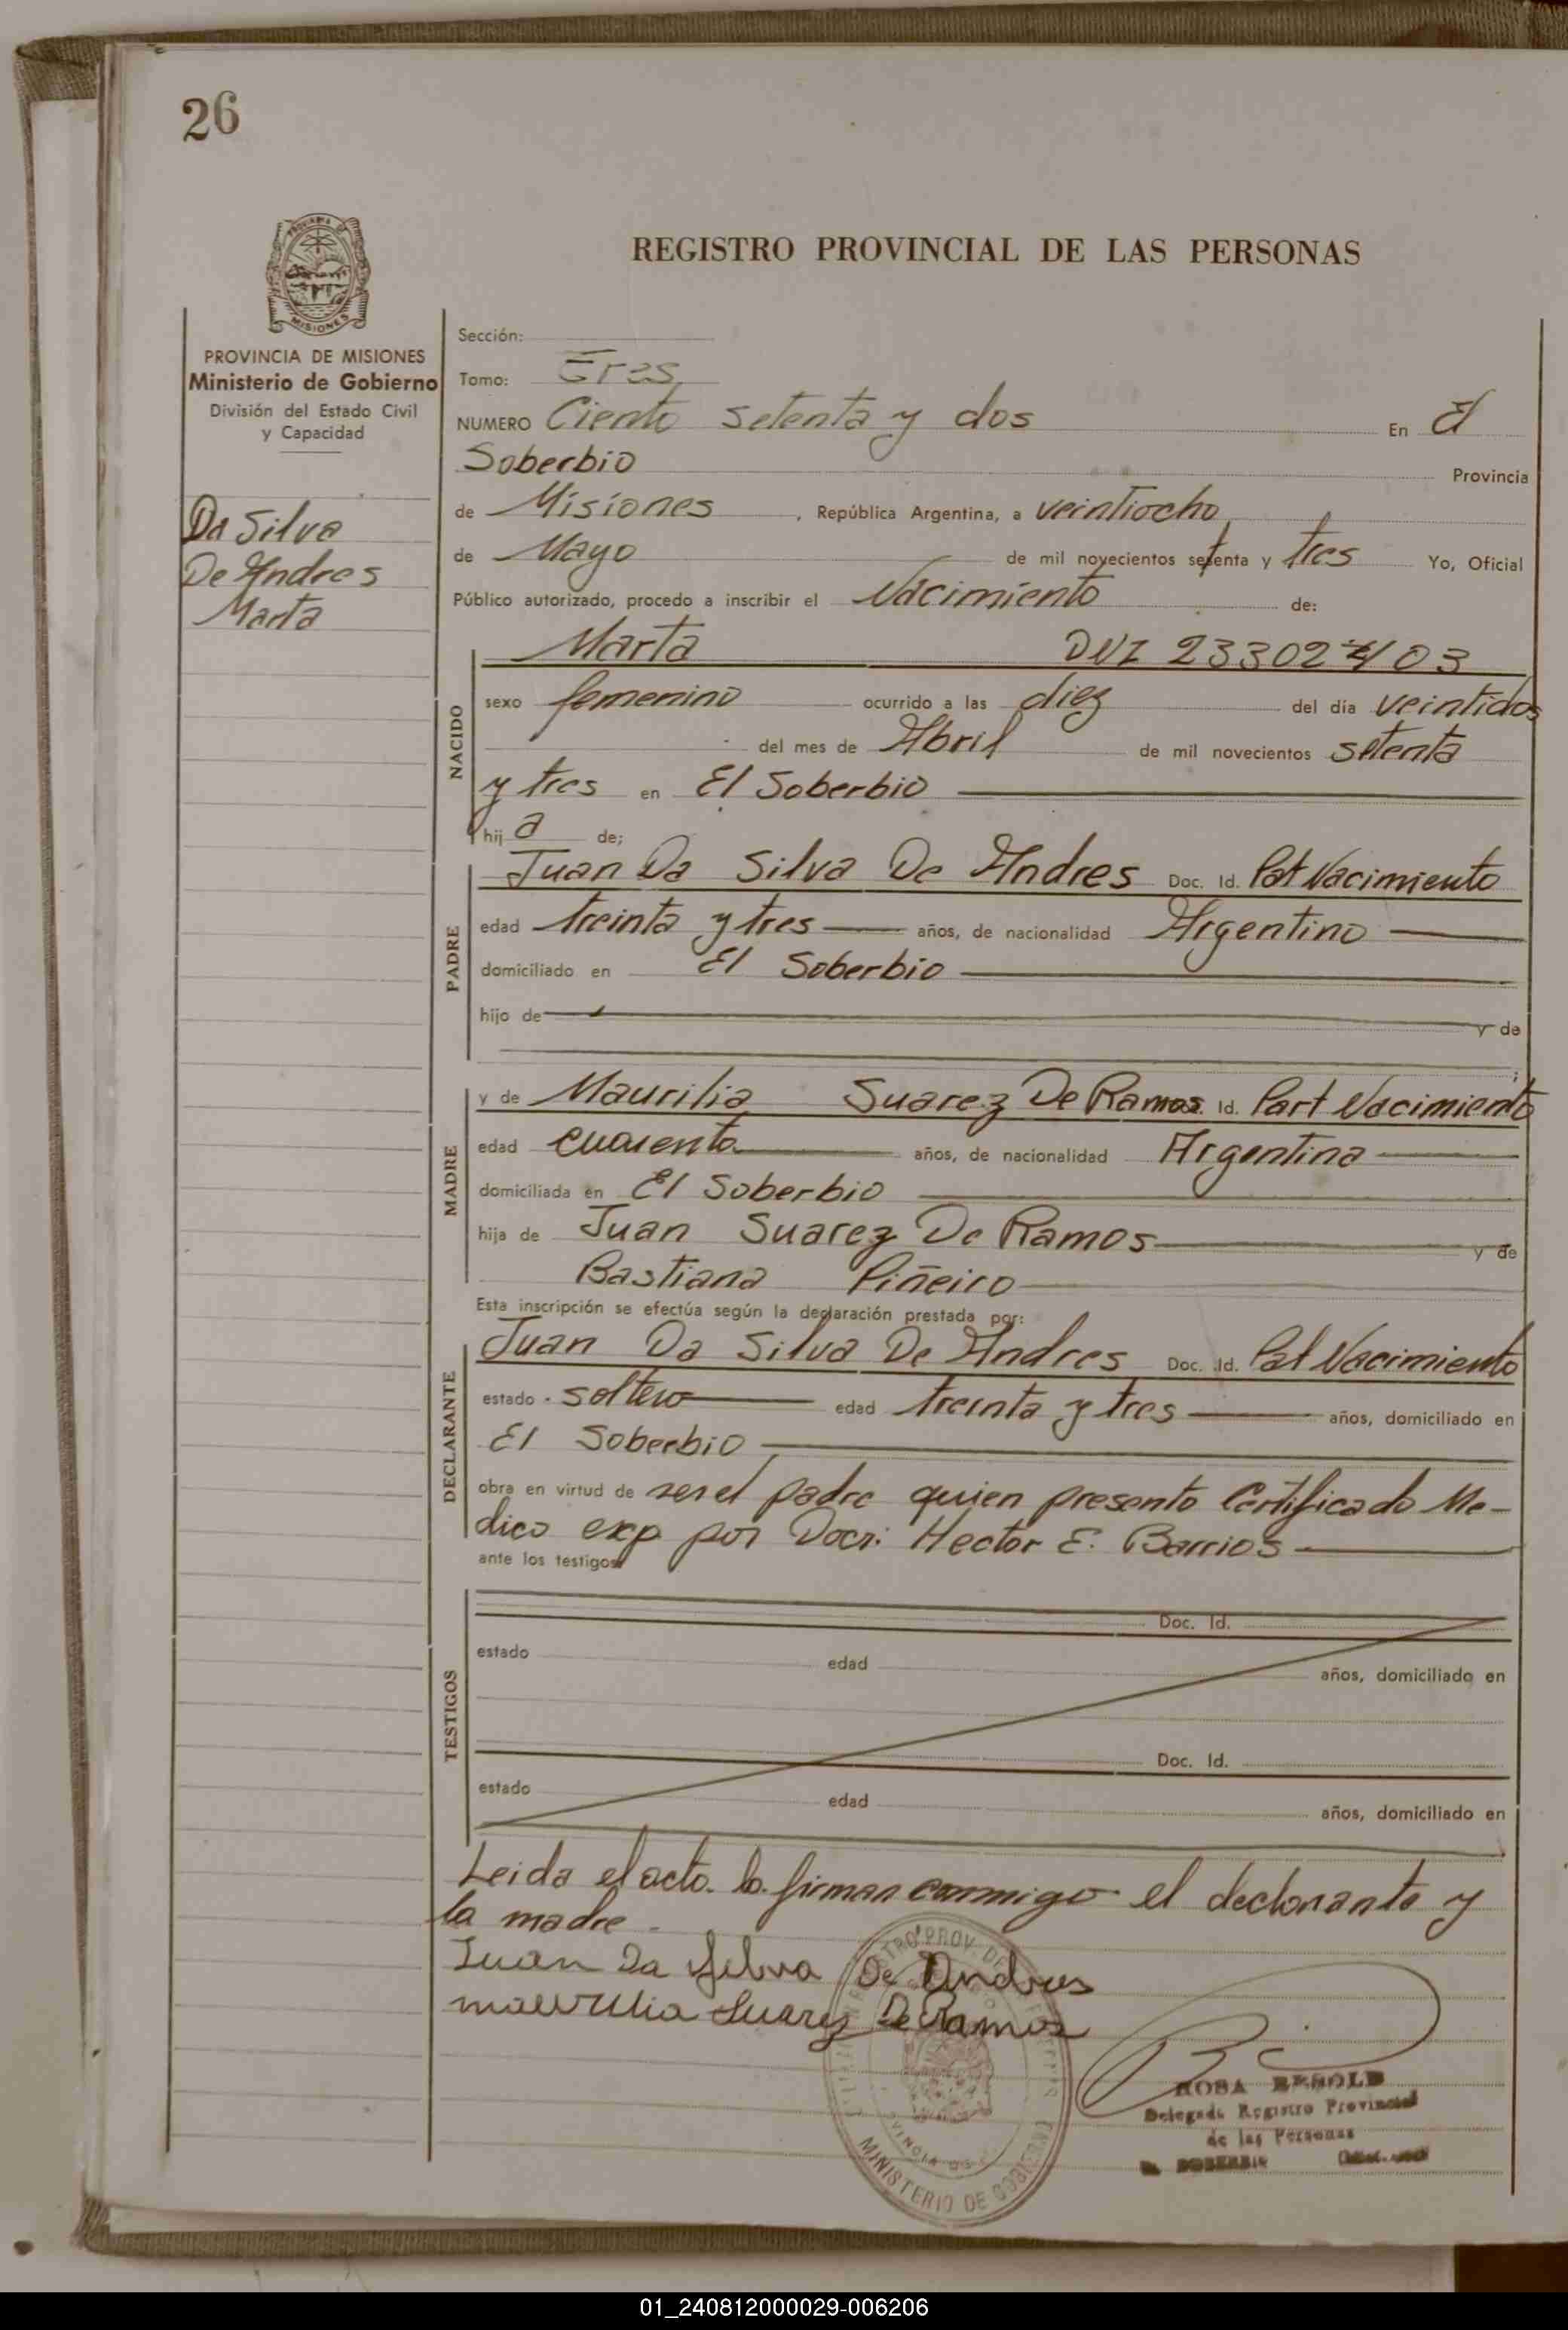 26
PROVINCIA DE MISIONES
Ministerio de Gobierno
División del Estado Civil
y Capacidad
Da Silva
De Andres
Marta
REGISTRO PROVINCIAL DE LAS PERSONAS
Sección:
Tomo: Tres
NUMERO Ciento setenta y dos En El
Soberbio Provincia
de Misiones, República Argentina, a veintiocho
de Mayo de mil novecientos setenta y tres Yo, Oficial
Público autorizado, procedo a inscribir el Nacimiento de:
NACIDO
Marta DNI
sexo femenino ocurrido a las diez del día veintidos
del mes de Abril de mil novecientos setenta
y tres en El Soberbio
hij a de;
PADRE
Juan Da Silva De Andres Doc. Id. Pat Nacimiento
edad treinta y tres años, de nacionalidad Argentino
domiciliado en El Soberbio
hijo de y de
;
MADRE
y de Maurilia Suarez De Ramos Id. Part Nacimiento
edad cuarenta años, de nacionalidad Argentina
domiciliada en El Soberbio
hija de Juan Suarez De Ramos y de
Bastiana Piñeiro
Esta inscripción se efectúa según la declaración prestada por:
DECLARANTE
Juan Da Silva De Andres Doc. Id. Pat Nacimiento
estado soltero edad treinta y tres años, domiciliado en
El Soberbio
obra en virtud de ser el padre quien presento Certificado Me-
dico exp por Docr: Hector E. Barrios
ante los testigos
TESTIGOS
Doc. Id.
estado edad años, domiciliado en
Doc. Id.
estado edad años, domiciliado en
Leida el acto. lo firman conmigo el declarante y
la madre.
Juan Da Silva De Andres
maurilia Suarez De Ramos
MINISTERIO DE GOBIERNO
ROSA
Delegada Registro Provincial
de las Personas
SOBERBIO
01_240812000029-006206